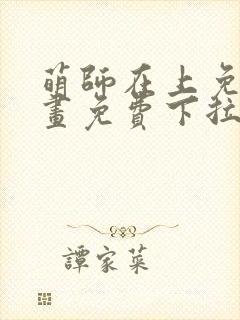 萌師在上免
畫免費下拉
譚家菜